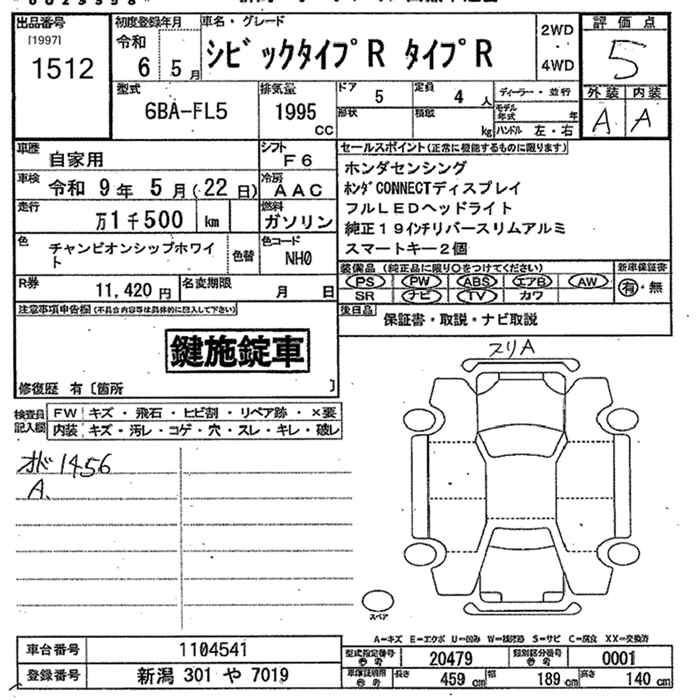 出品番号
[1997]
1512
初度登録年月
令和
6 5月
車名・グレード
シビックタイプR タイプR
2WD
・
4WD
評価点
5
外装 内装
A A
型式
6BA-FL5
排気量
1995
CC
ドア
5
定員
4人
形状
積載
kg
ディーラー・並行
モデル年式 年
ハンドル 左・右
車歴
自家用
シフト
F6
車検
令和 9年 5月(22日)
冷房
AAC
走行
万1千500 km
燃料
ガソリン
色
チャンピオンシップホワイト
色替
色コード
NH0
R券
11,420円
名変期限
月 日
セールスポイント(正常に機能するものに限ります)
ホンダセンシング
ホンダCONNECTディスプレイ
フルLEDヘッドライト
純正19インチリバースリムアルミ
スマートキー2個
装備品(純正品に限り○をつけてください)
PS PW ABS エアB AW
SR ナビ TV カワ
新車保証書
有・無
後日品
保証書・取説・ナビ取説
注意事項申告欄(不具合内容等は具体的に記入して下さい)
鍵施錠車
修復歴 有〔箇所 〕
検査員記入欄
FW キズ・飛石・ヒビ割・リペア跡・×要
内装 キズ・汚レ・コゲ・穴・スレ・キレ・破レ
オド1456
A.
スリA
スペア
A=キズ E=エクボ U=凹み W=補修跡 S=サビ C=腐食 XX=交換済
車台番号
1104541
登録番号
新潟 301 や 7019
型式指定番号
参考
20479
類別区分番号
参考
0001
車検証積用
参考
長さ
459cm
幅
189cm
高さ
140cm